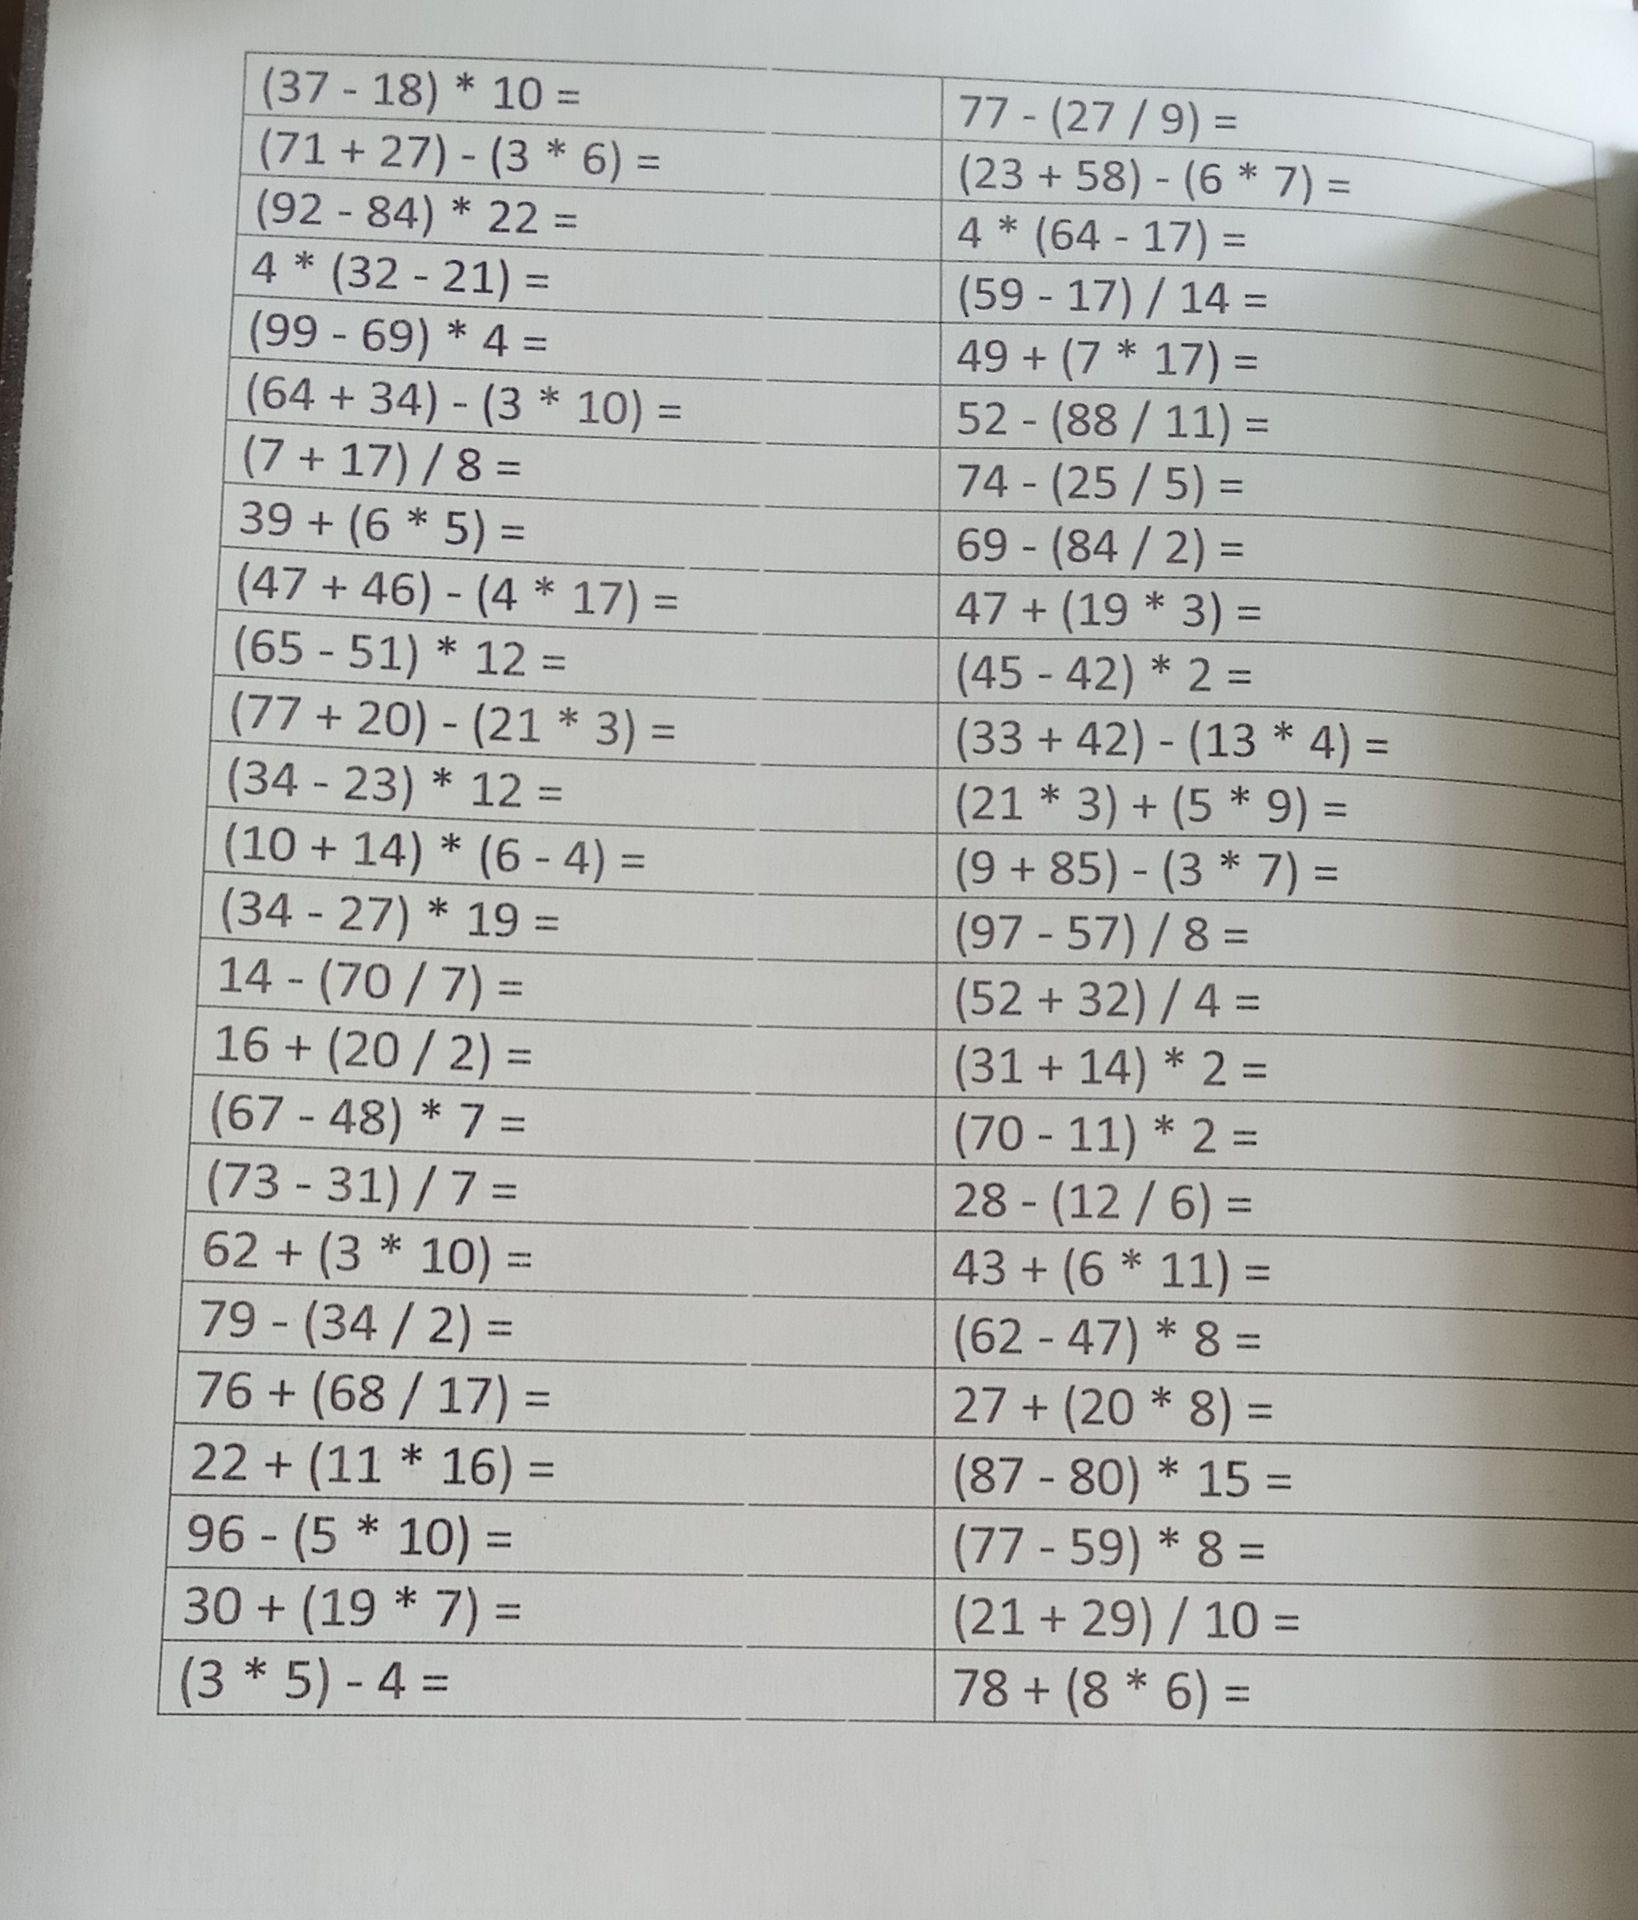 (37 - 18) * 10 =
77 - (27 / 9) =
(71 + 27) - (3 * 6) =
(23 + 58) - (6 * 7) =
(92 - 84) * 22 =
4 * (64 - 17) =
4 * (32 - 21) =
(59 - 17) / 14 =
(99 - 69) * 4 =
49 + (7 * 17) =
(64 + 34) - (3 * 10) =
52 - (88 / 11) =
(7 + 17) / 8 =
74 - (25 / 5) =
39 + (6 * 5) =
69 - (84 / 2) =
(47 + 46) - (4 * 17) =
47 + (19 * 3) =
(65 - 51) * 12 =
(45 - 42) * 2 =
(77 + 20) - (21 * 3) =
(33 + 42) - (13 * 4) =
(34 - 23) * 12 =
(21 * 3) + (5 * 9) =
(10 + 14) * (6 - 4) =
(9 + 85) - (3 * 7) =
(34 - 27) * 19 =
(97 - 57) / 8 =
14 - (70 / 7) =
(52 + 32) / 4 =
16 + (20 / 2) =
(31 + 14) * 2 =
(67 - 48) * 7 =
(70 - 11) * 2 =
(73 - 31) / 7 =
28 - (12 / 6) =
62 + (3 * 10) =
43 + (6 * 11) =
79 - (34 / 2) =
(62 - 47) * 8 =
76 + (68 / 17) =
27 + (20 * 8) =
22 + (11 * 16) =
(87 - 80) * 15 =
96 - (5 * 10) =
(77 - 59) * 8 =
30 + (19 * 7) =
(21 + 29) / 10 =
(3 * 5) - 4 =
78 + (8 * 6) =